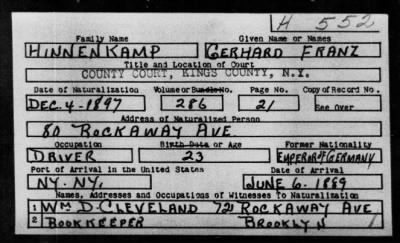 H 552
Family Name Given Name or Names
HINNENKAMP GERHARD FRANZ
Title and Location of Court
COUNTY COURT, KINGS COUNTY, N.Y.
Date of Naturalization Volume or Bundle No. Page No. Copy of Record No.
DEC. 4-1897 286 21 See Over
Address of Naturalized Person
80 ROCKAWAY AVE
Occupation Birth Date or Age Former Nationality
DRIVER 23 EMPEROR OF GERMANY
Port of Arrival in the United States Date of Arrival
NY. NY. JUNE 6. 1889
Names, Addresses and Occupations of Witnesses To Naturalization
1 WM D. CLEVELAND 721 ROCKAWAY AVE
2 BOOKKEEPER BROOKLYN